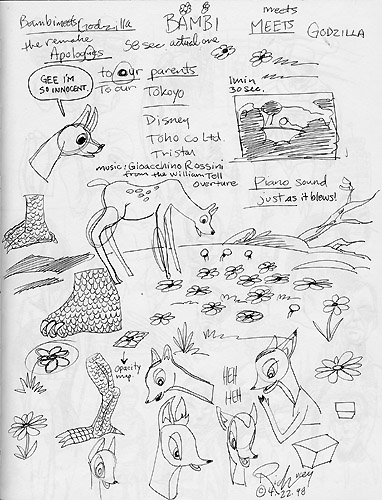 Bambi meets Godzilla
the remake
Apologies
58 sec actual one
BAMBI
meets
MEETS
GODZILLA
GEE I'M
SO INNOCENT.
to our parents
To our
Tokoyo
Disney
Toho co Ltd.
Tristar
music: Gioacchino Rossini
from the William Tell
overture
1min
30 sec.
Piano sound
just as it blows!
opacity
map
HEH
HEH
© 4.22.98